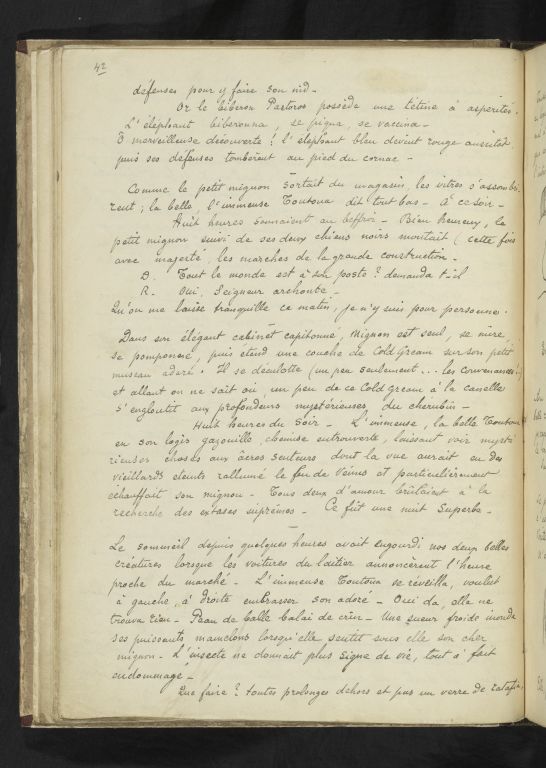 42
défenses pour y faire son nid -
Or le biberon Pastoros possède une tétine à aspérités.
L'éléphant biberonna, se piqua, se vaccina -
O merveilleuse découverte! l'éléphant bleu devint rouge aussitôt
puis ses défenses tombèrent au pied du cornac -
Comme le petit mignon sortait du magasin, les vitres s'assombri-
rent; la belle l'immense Toutoua dit tout bas - à ce soir -
Huit heures sonnaient au beffroi - Bien heureux, le
petit mignon suivi de ses deux chiens noirs montait (cette fois
avec majesté) les marches de la grande construction -
D. Tout le monde est à son poste? demanda t-il
R. Oui, Seigneur archonte -
Qu'on me laisse tranquille ce matin, je n'y suis pour personne.
Dans son élégant cabinet capitonné, Mignon est seul, se mire,
se pomponne, puis étend une couche de Cold Cream sur son petit
museau adoré. Il se déculotte (un peu seulement... les convenances!)
et allant on ne sait où un peu de ce Cold Cream à la canelle
s'engloutit aux profondeurs mystérieuses du chérubin -
Huit heures du Soir - L'immense, la belle Toutoua
en son logis gazouille, chemise entrouverte, laissant voir mysté
rieuses choses aux âcres senteurs dont la vue aurait en des
vieillards éteints rallumé le feu de Vénus et particulièrement
échauffait son mignon - Tous deux d'amour brûlaient à la
recherche des extases suprêmes - Ce fût une nuit superbe -
Le sommeil depuis quelques heures avait engourdi nos deux belles
créatures lorsque les voitures du laitier annoncèrent l'heure
proche du marché - L'immense Toutoua se réveilla, voulut
à gauche à droite embrasser son adoré - Oui da, elle ne
trouva rien - Peau de balle balai de crin - Une sueur froide inonda
ses puissants mamelons lorsqu'elle sentit sous elle son cher
mignon - L'insecte ne donnait plus signe de vie, tout à fait
endommagé -
Que faire? toutes prolonges dehors et pas un verre de ratafia,